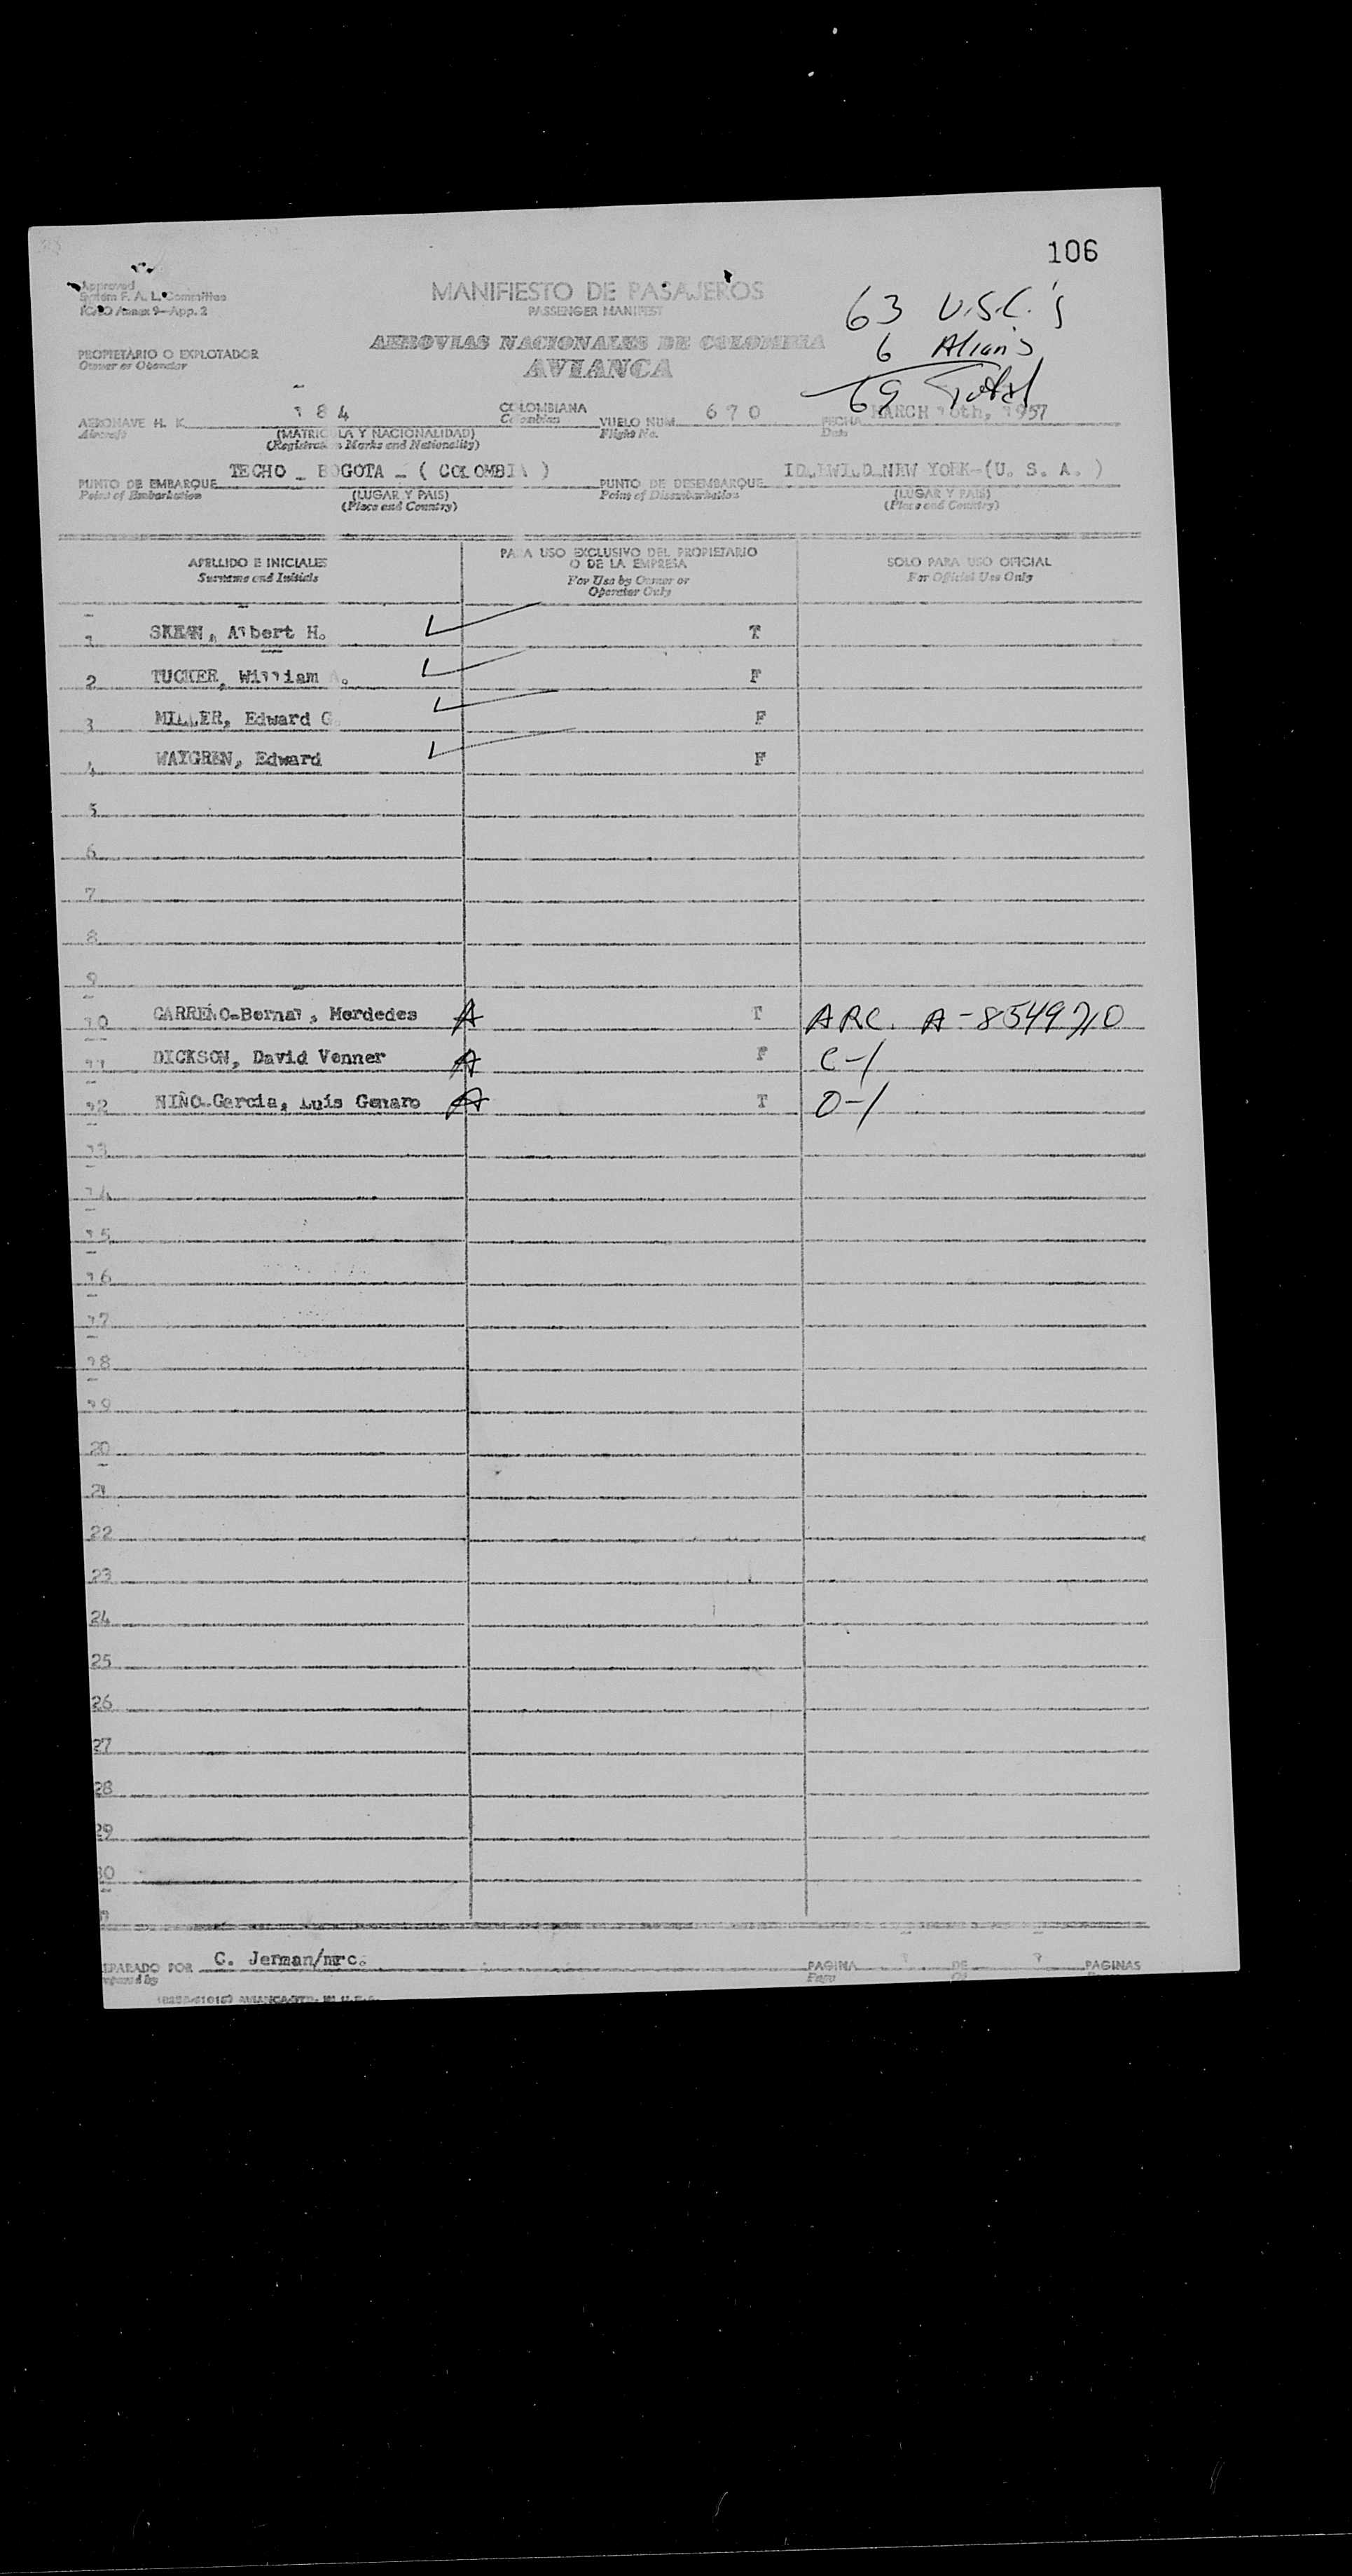 106
Approved
System F. A. L. Committee
ICAO Annex 9—App. 2
MANIFIESTO DE PASAJEROS
PASSENGER MANIFEST
63 U.S.C.'s
6 Alien's
69 Total
PROPIETARIO O EXPLOTADOR
Owner or Operator
AEROVIAS NACIONALES DE COLOMBIA
AVIANCA
AERONAVE H. K. 184 COLOMBIANA VUELO NUM. 670 FECHA MARCH 1957
Aircraft (MATRICULA Y NACIONALIDAD) Colombian Flight No. Date
(Registration Marks and Nationality)
PUNTO DE EMBARQUE TECHO - BOGOTA - ( COLOMBIA ) PUNTO DE DESEMBARQUE IDLEWILD NEW YORK-(U. S. A. )
Point of Embarkation (LUGAR Y PAIS) Point of Disembarkation (LUGAR Y PAIS)
(Place and Country) (Place and Country)
APELLIDO E INICIALES PARA USO EXCLUSIVO DEL PROPIETARIO SOLO PARA USO OFICIAL
Surname and Initials O DE LA EMPRESA For Official Use Only
For Use by Owner or
Operator Only
1 Albert H. T
2 TUCKER, William F
3 MILLER, Edward G. F
4 WAYGREN, Edward F
5
6
7
8
9
10 CARREÑO-Bernal, Merdedes A T ARC. A-8549710
11 DICKSON, David Venner A F C-1
12 NIÑO-Garcia, Luis Genaro A T O-1
13
14
15
16
17
18
19
20
21
22
23
24
25
26
27
28
29
30
PREPARADO POR C. Jerman/mrc. PAGINA 1 DE 1 PAGINAS
Prepared by Page Of